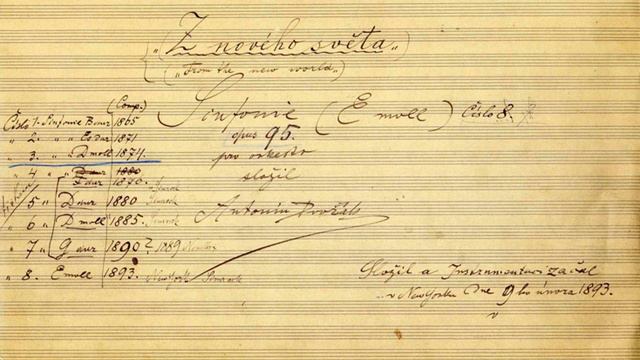 „Z nového světa“
(„From the new world“)
Sinfonie (E moll) Číslo 8.
opus 95.
pro orkestr
složil
Antonín Dvořák
(Comp.)
Číslo 1. Sinfonie B dur 1865
„ 2. „ Es dur 1871
„ 3. „ D moll 1874.
„ 4 „ D dur 1880
F dur 1876. Simrok
„ 5 „ D dur 1880 Simrok
„ 6 „ D moll 1885. Simrok
„ 7 „ G dur 1890? 1889 Novello
„ 8. E moll 1893. New York Simrock
Složil a Instrumentaci začal
v New Yorku dne 9ho února 1893.